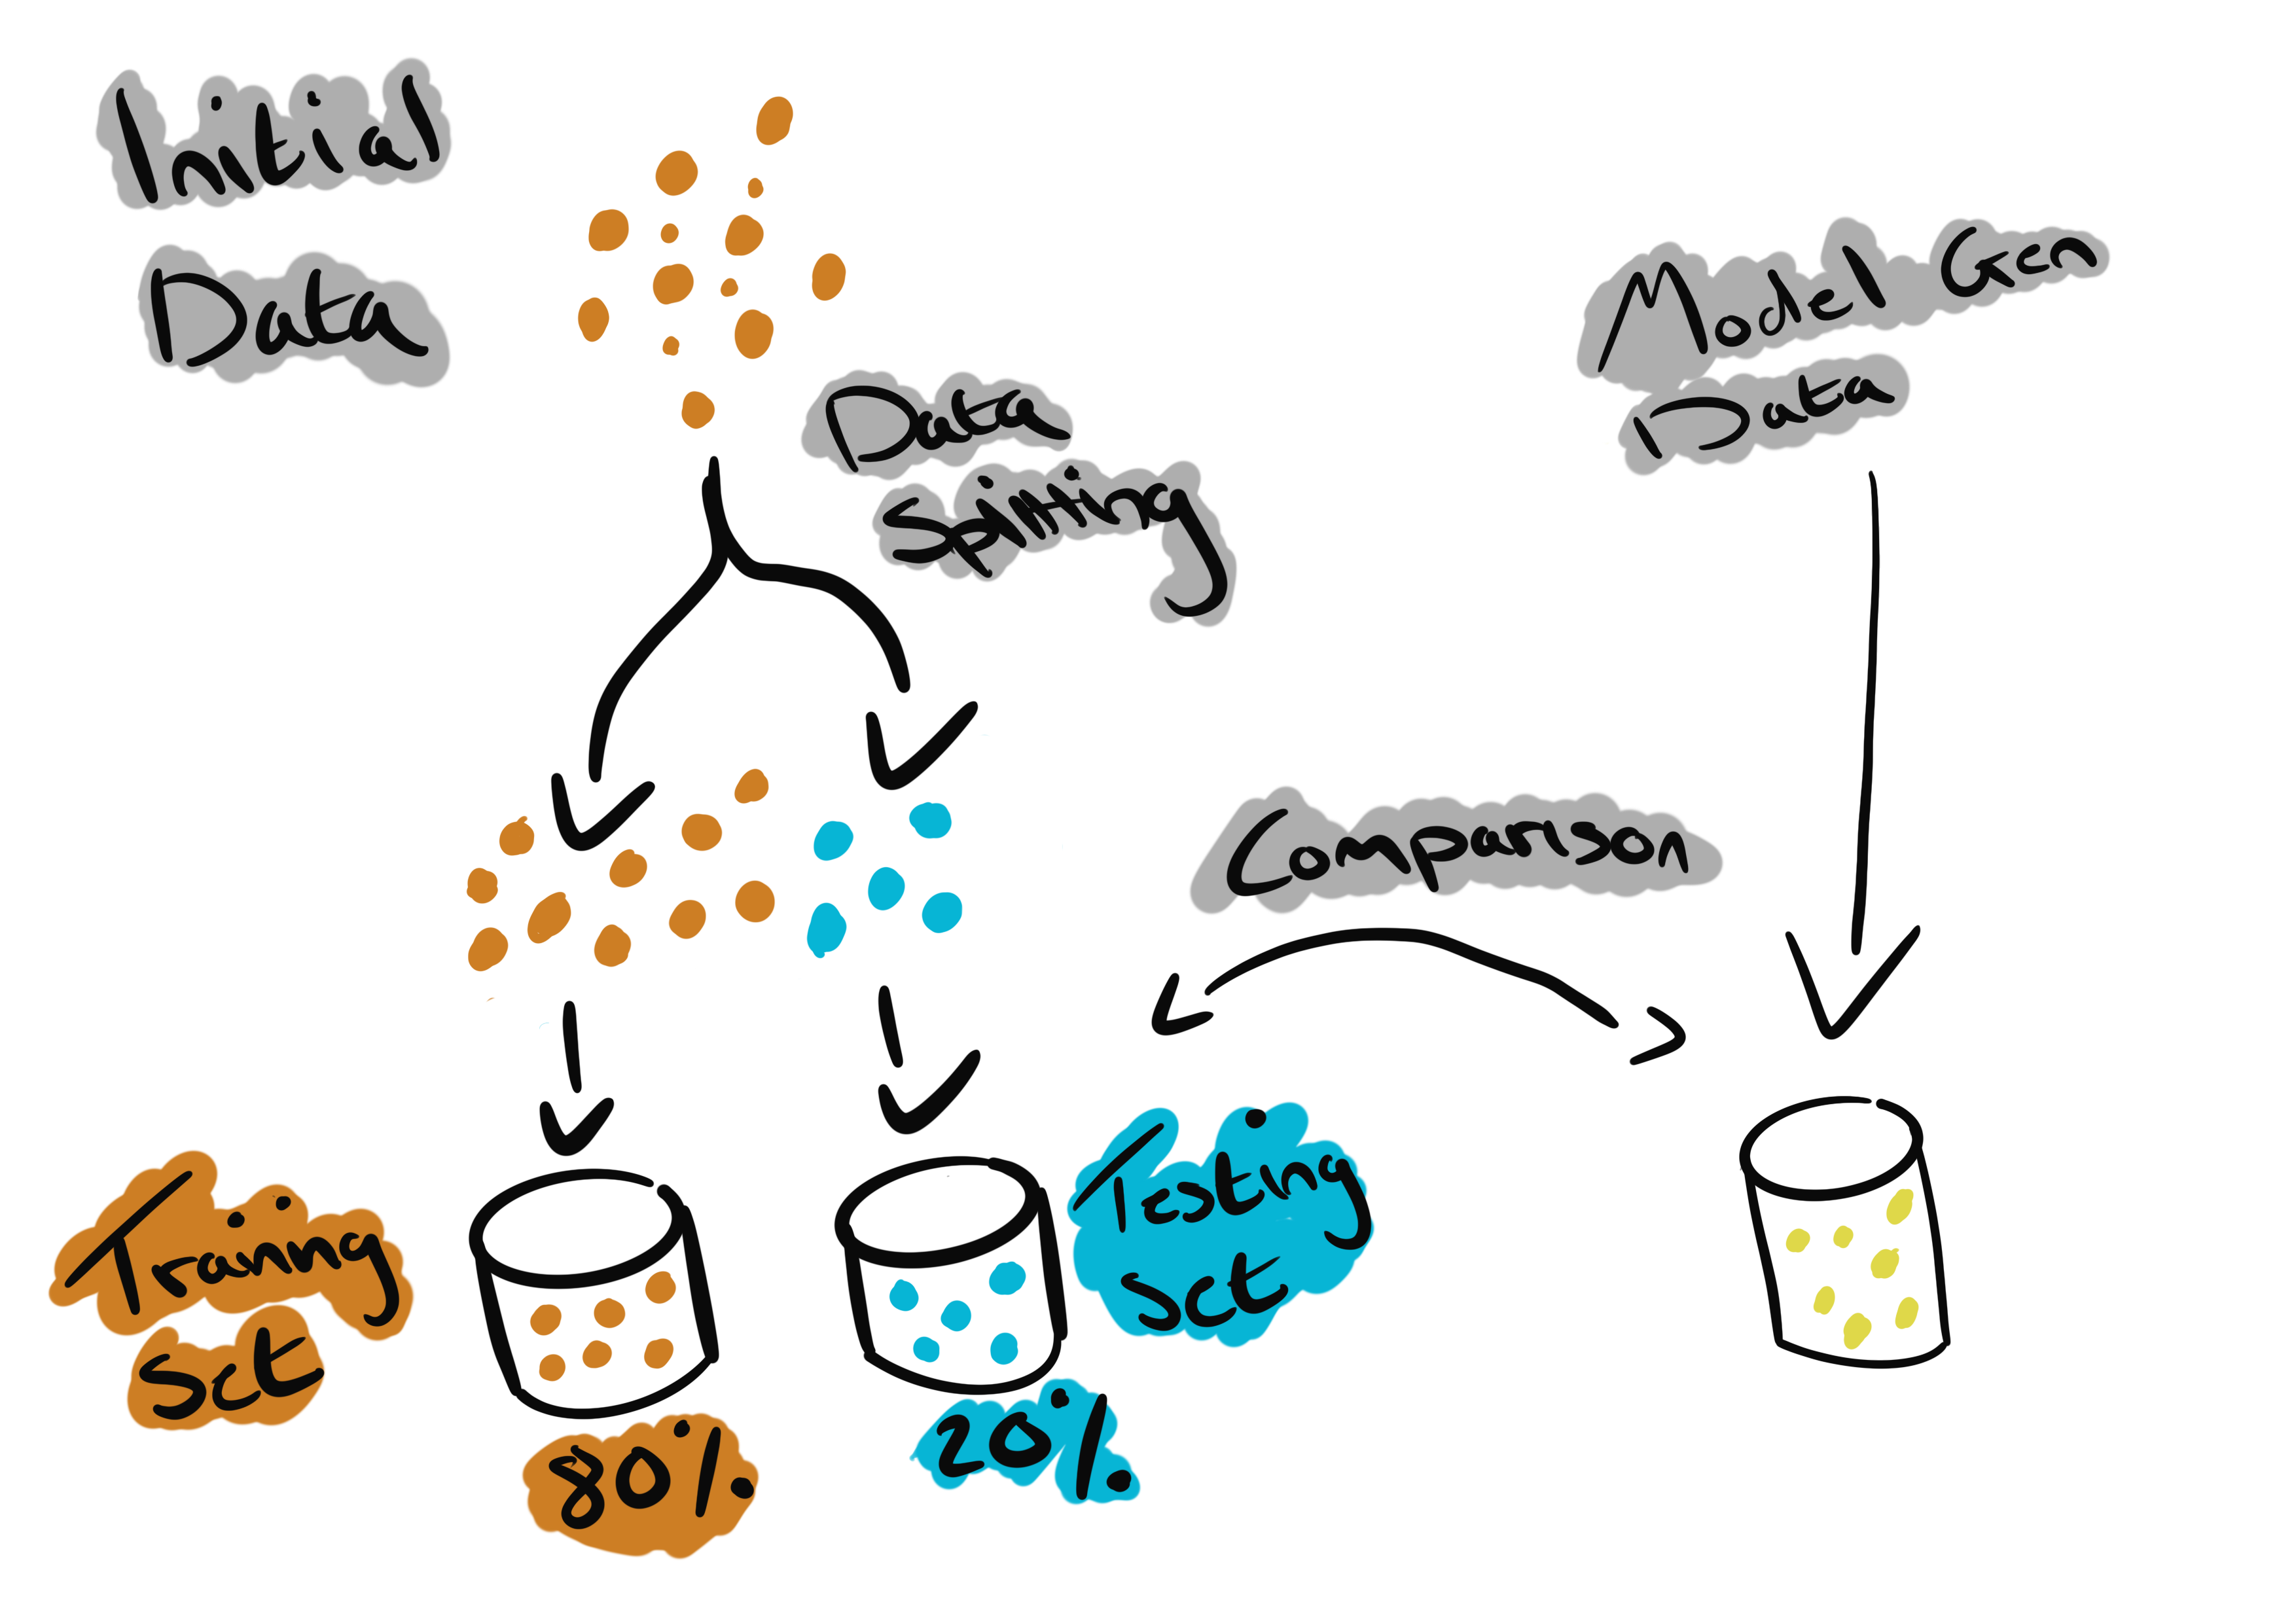 Initial
Data
Data
Splitting
Model Gen
Data
Comparison
Training
Set
Testing
Set
80%
20%